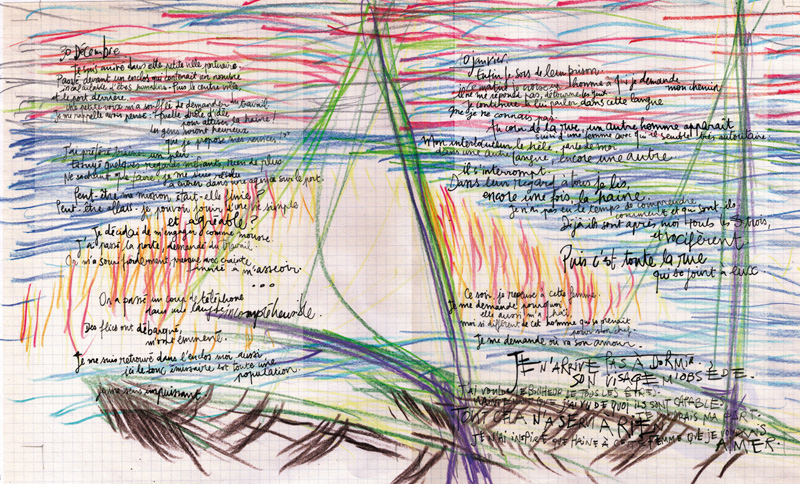 30 Décembre
Je suis arrivé dans cette petite ville portuaire.
Passé devant un enclos qui contenait un nombre
incalculable d'êtres humains. Puis le centre ville
et le port derrière.
Une petite voix m'a soufflé de demander du travail
Je me rappelle avoir pensé : "Quelle drôle d'idée
pour attiser sa haine !
les gens seront heureux
que je propose mes services."
J'ai préféré traîner un peu
Essuyé quelques regards méfiants, rien de plus
Ne sachant que faire, je me suis résolu
à entrer dans une agence sur le port.
Peut-être ma mission était-elle finie ?
Peut-être allais-je pouvoir jouir d'une vie simple
et agréable ?
Je décidai de m'engager comme mousse.
J'ai passé la porte, demandé du travail
On m'a sous froidement presque avec crainte
invité à m'asseoir.
...
On a passé un coup de téléphone
dans une langue incompréhensible.
Des flics ont débarqué,
m'ont emmené.
Je me suis retrouvé dans l'enclos moi aussi
ici le bouc émissaire est toute une
population.
Je me sens impuissant.
10 janvier.
Enfin je sors de leur prison.
Ce matin je croise un homme à qui je demande
mon chemin
Il ne me répond pas, détourne les yeux
Je continue à lui parler dans cette langue
que je ne connais pas.
Au coin de la rue, un autre homme apparaît
suivi d'un homme avec qui il semble très autoritaire.
Mon interlocuteur le hèle, parle de moi
dans une autre langue, encore une autre.
Il s'interrompt.
Dans leur regard à tous je lis,
encore une fois, la haine.
Je n'ai pas eu le temps de comprendre
comment et qui sont-ils
Déjà ils sont après moi tous les 3 trois,
et vocifèrent
Puis c'est toute la rue
qui se joint à eux
Ce soir, je repense à cette femme.
Je me demande pourquoi
elle aussi m'a haï,
moi si différent de cet homme qui se prenait
pour mon chef.
Je me demande où va son amour.
JE N'ARRIVE PAS À DORMIR.
SON VISAGE M'OBSÈDE.
J'AI VOULU LE BONHEUR DE TOUS LES ÊTRES.
MAINTENANT J'AI VU DE QUOI ILS SONT CAPABLES
JE SERAIS MA MORT.
TOUT CELA N'A SERVI À RIEN
JE N'AI INSPIRÉ QUE HAINE À CETTE FEMME QUE JE POURRAIS
AIMER.